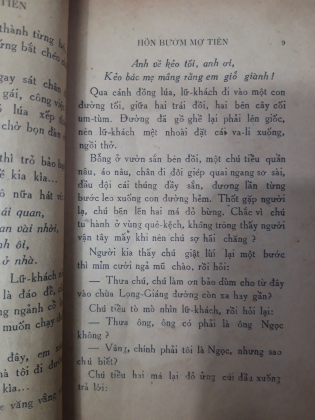 TIÊN
thành từng b
ứng bắt chéo
gay sát chân
gái, công việ
lúa xếp
chờ bọn đàn
thì trỏ bảo
kìa kìa...
nữa hát v
ái quan,
an vài nhời
nh ôi,
ở nhà.
Lữ-khách
là đáo đề, c
vẳng cổ
muốn chạy
dây, em x
nhà tôi đi
kìa...
ề ngành h
HỒN BƯỚM MƠ TIÊN 9
Anh về kẻo tối, anh ơi,
Kẻo bác mẹ mắng rằng em giỗ giành!
Qua cánh đồng lúa, lữ-khách đi vào một con
đường tối, giữa hai trái đồi, hai bên cây cối
um-tùm. Đường đã gồ ghề lại phải lên giốc,
nên lữ-khách mệt nhoài đặt cái va-li xuống,
ngồi thở.
Bỗng ở vườn sắn bên đồi, một chú tiểu quần
nâu, áo nâu, chân đi đôi giép quai ngang sơ sài,
đầu đội cái thúng đầy sắn, đương lần từng
bước leo xuống con đường hẻm. Thốt gặp người
lạ, chú bẽn lẽn hai má đỏ bừng. Chắc vì chú
tu hành ở vùng quê-kệch, không trông thấy người
vận tây mấy khi nên chú sợ hãi chăng?
Người kia thấy chú giật lùi lại một bước
thì mỉm cười ngả mũ chào, rồi hỏi:
— Thưa chú, chú làm ơn bảo dùm cho từ đây
vào chùa Long-Giáng đường còn xa hay gần?
Chú tiểu tò mò nhìn lữ-khách, rồi hỏi lại:
— Thưa ông, ông có phải là ông Ngọc
không?
— Vâng, chính phải tôi là Ngọc, nhưng sao
chú biết?
Chú tiểu hai má lại đỏ ửng cúi đầu xuống
trả lời: